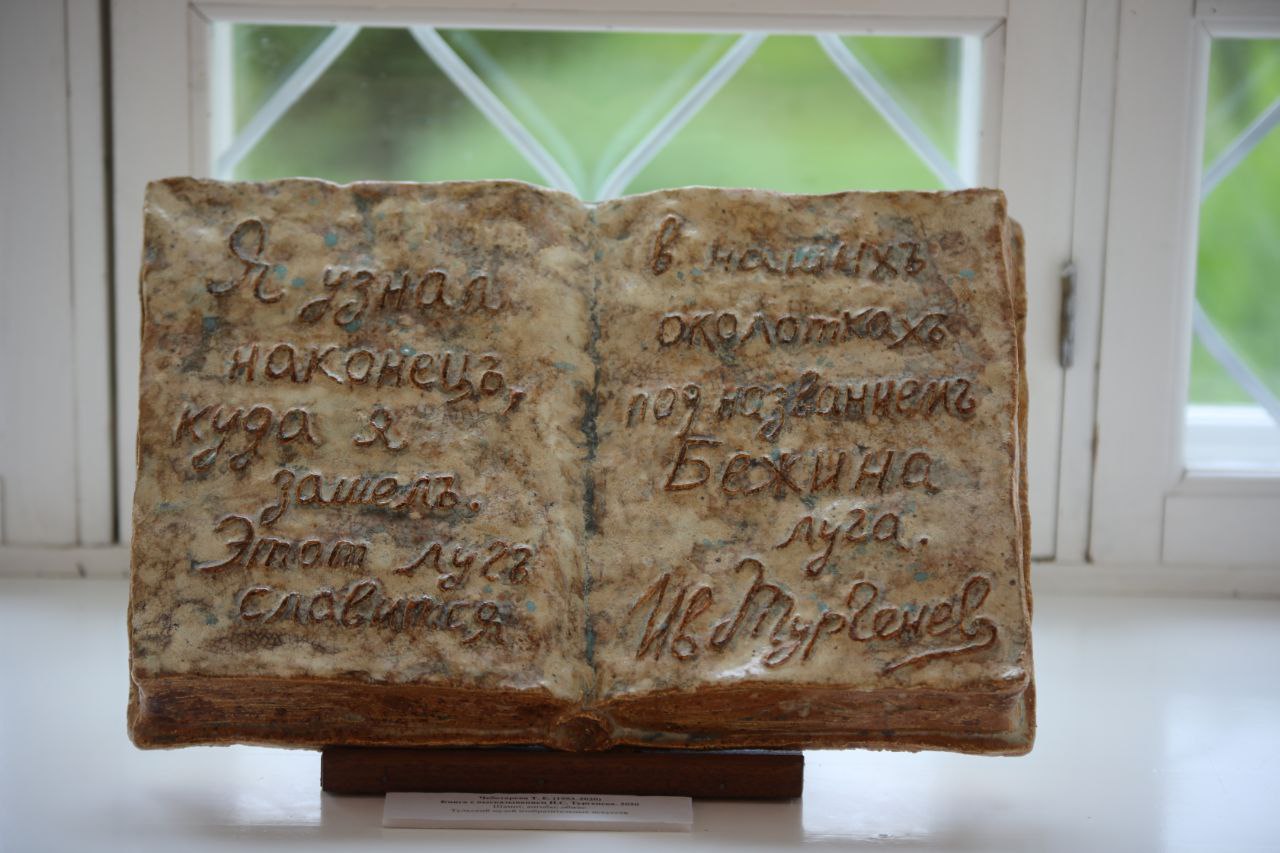 Я узнал
наконецъ,
куда я
зашелъ.
Этот лугъ
славится
в нашихъ
околоткахъ
под названиемъ
Бежина
луга.
Ив Тургенев
Книга с высказыванием И.С. Тургенева. 2020
Тульский музей изобразительных искусств